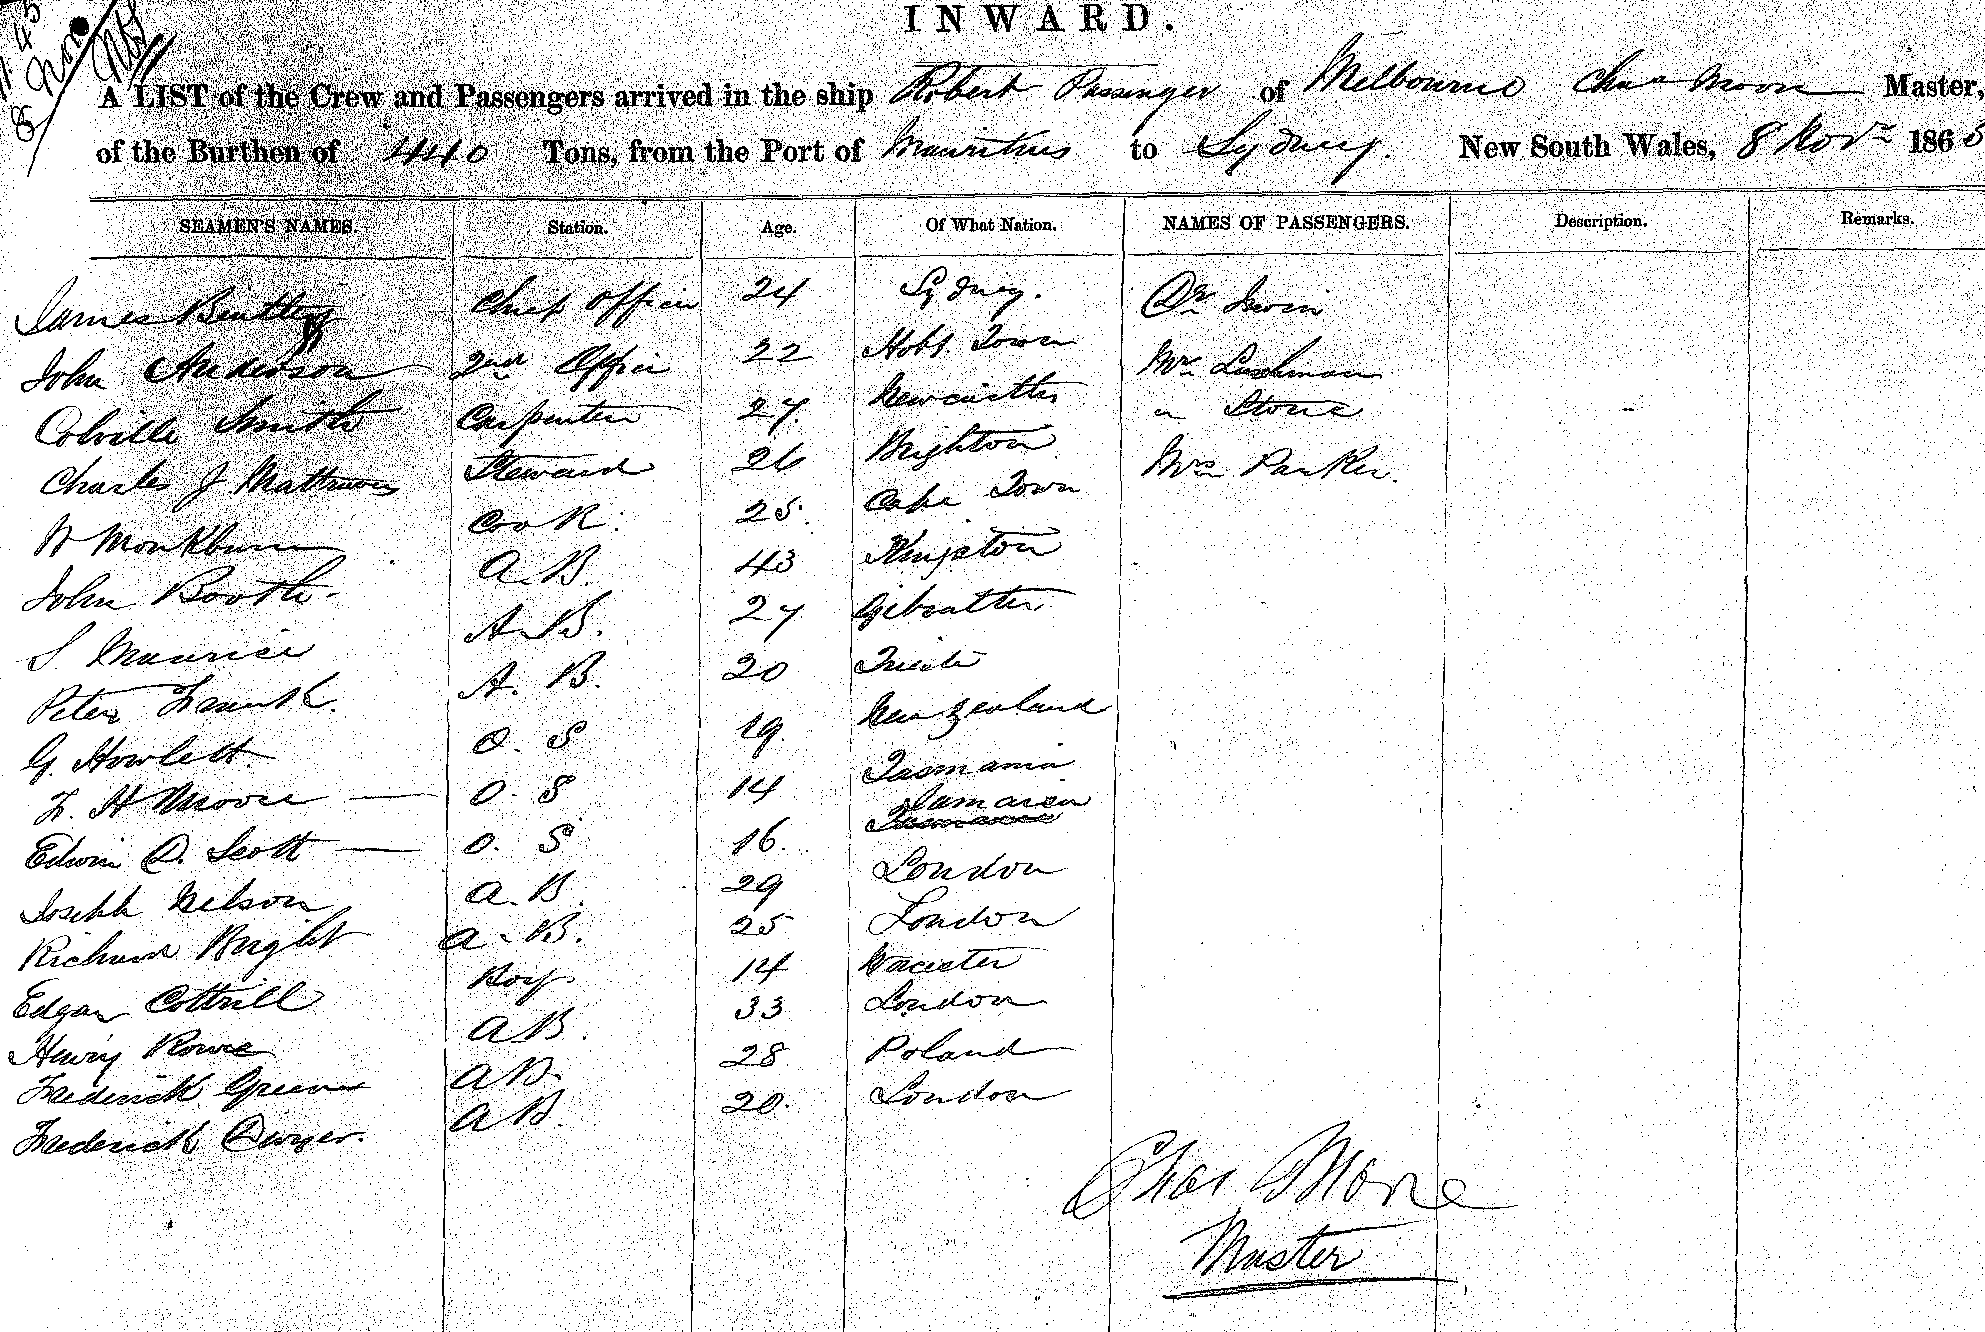 INWARD.
A LIST of the Crew and Passengers arrived in the ship Robert Passenger of Melbourne Chas Moore Master,
of the Burthen of 440 Tons, from the Port of Mauritius to Sydney. New South Wales, 8 Novr 186
SEAMEN'S NAMES. Station. Age. Of What Nation. NAMES OF PASSENGERS. Description. Remarks.
James Chief Officer 24 Sydney. Dr Irwin
John Anderson 2nd Officer 22 Hobt Town Mr Lushman
Colville Smith Carpenter 27. Newcastle " Stone
Charles J Matthews Steward 26 Brighton Mrs Parker.
W Monkburn Cook. 25. Cape Town
John Booth. A.B. 43 Kingston
S. Maurice A.B. 27 Gibralter
Peter A. B. 20 Trieste
G. Howlett O. S 19. New Zealand
F. H Moore — O. S 14 Tasmania
Edwin D. Scott — O. S 16. Jamaica Tasmania
Joseph Nelson A.B. 29 London
Richard Bright A.B. 25 London
Edgar Cottrill Boy 14 Worcester
Henry Rowe AB. 33 London
Frederick Green AB. 28 Poland
Frederick Dwyer. AB. 20. London
Chas Moore
Master